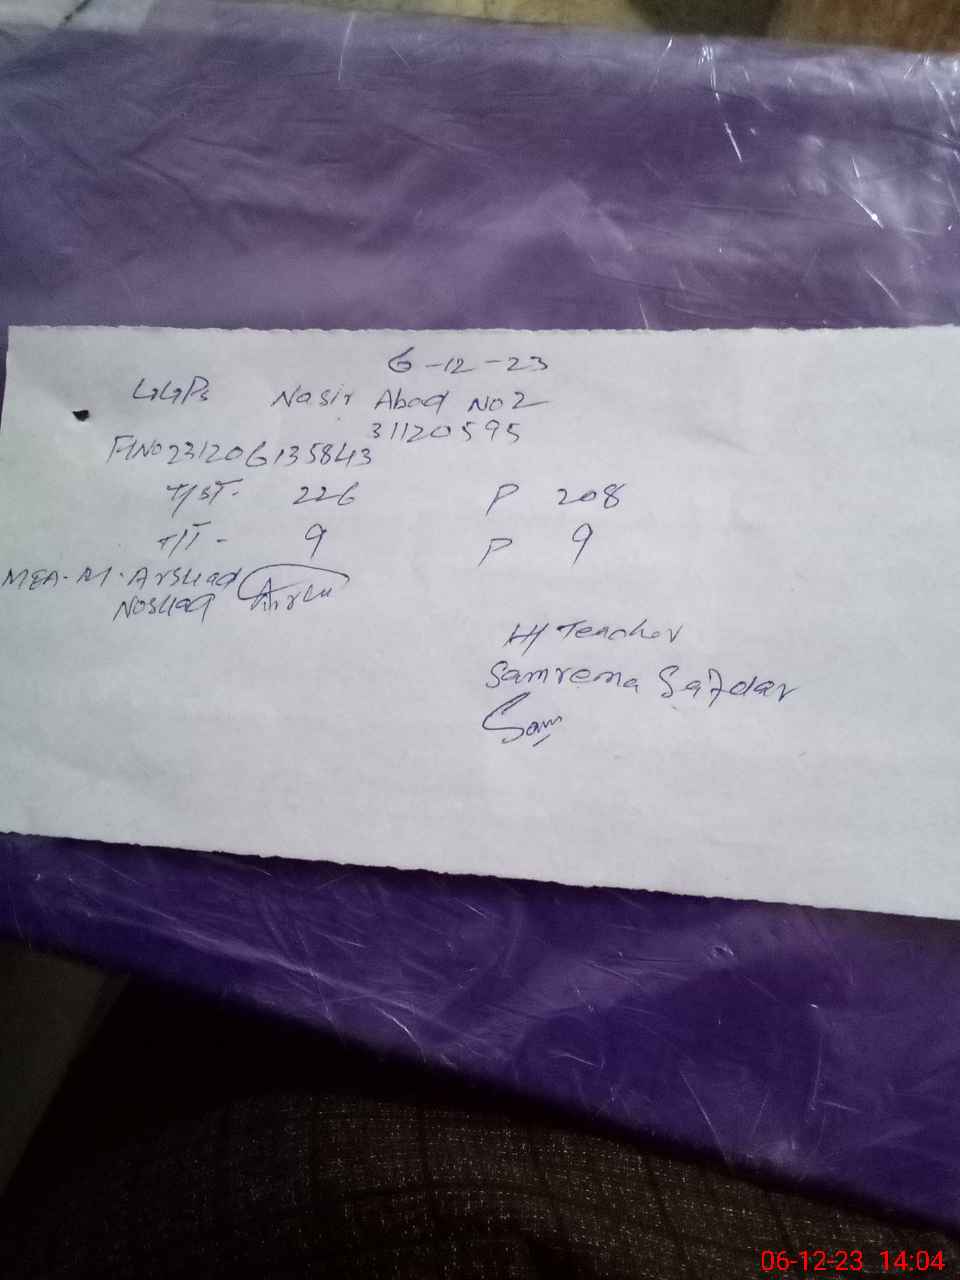 6-12-23
GGPS Nasir Abad No 2
31120595
F/No 231206135843
T/ST- 226 P 208
T/T- 9 P 9
MEA- M. Arshad
Noshad
H/Teacher
Samreena Safdar
Sam
06-12-23 14:04